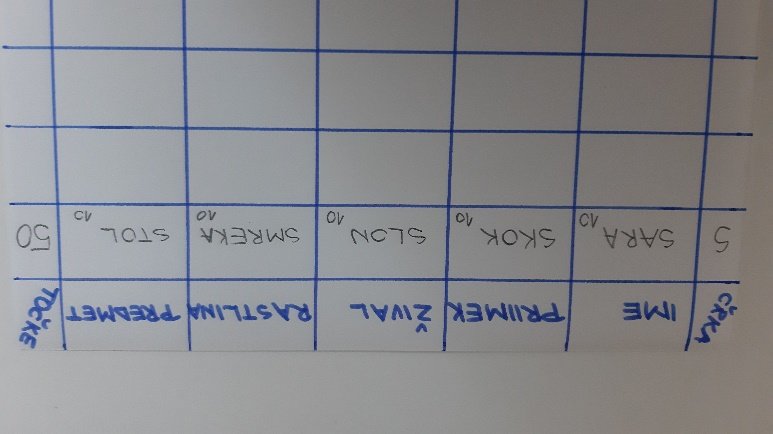 ČRKA IME PRIIMEK ŽIVAL RASTLINA PREDMET TOČKE
S SARA 10 SKOK 10 SLON 10 SMREKA 10 STOL 10 50